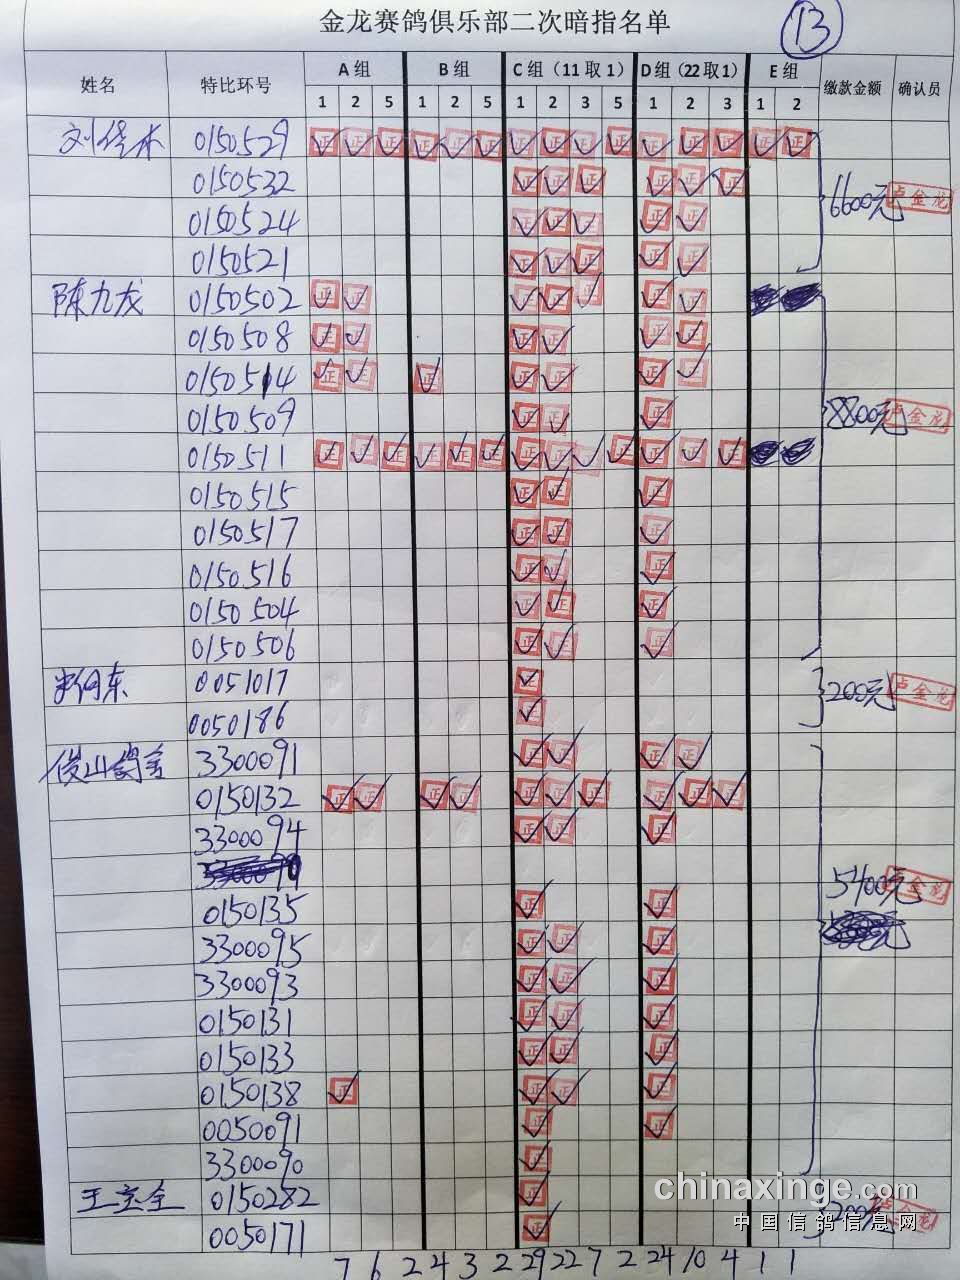 金龙赛鸽俱乐部二次暗指名单
13
姓名 特比环号 A组 B组 C组（11取1） D组（22取1） E组 缴款金额 确认员
1 2 5 1 2 5 1 2 3 5 1 2 3 1 2
0150529 正 正 正 正 正 正 正 正 正 正 正 正 正 正 正
0150532 正 正 正 正 正 正 6600元 卢金龙
0150524 正 正 正 正 正
0150521 正 正 正 正 正
陈九龙 0150502 正 正 正 正 正 正 正
0150508 正 正 正 正 正 正
0150514 正 正 正 正 正 正 正
0150509 正 正 正 8800元 卢金龙
0150511 正 正 正 正 正 正 正 正 正 正 正 正 正
0150515 正 正 正
0150517 正 正 正
0150516 正 正 正
0150504 正 正 正
0150506 正 正 正
0051017 正 200元 卢金龙
0050186 正
俊山鸽舍 3300091 正 正 正 正
0150132 正 正 正 正 正 正 正 正 正 正
3300094 正 正 正
5400元 卢金龙
0150135 正 正
3300095 正 正 正
3300093 正 正 正
0150131 正 正 正
0150133 正 正 正
0150138 正 正 正 正
0050091 正 正
3300090 正
王京全 0150282 正 200元 卢金龙
0050171 正
7 6 2 4 3 2 29 22 7 2 24 10 4 1 1
chinaxinge.com
中国信鸽信息网